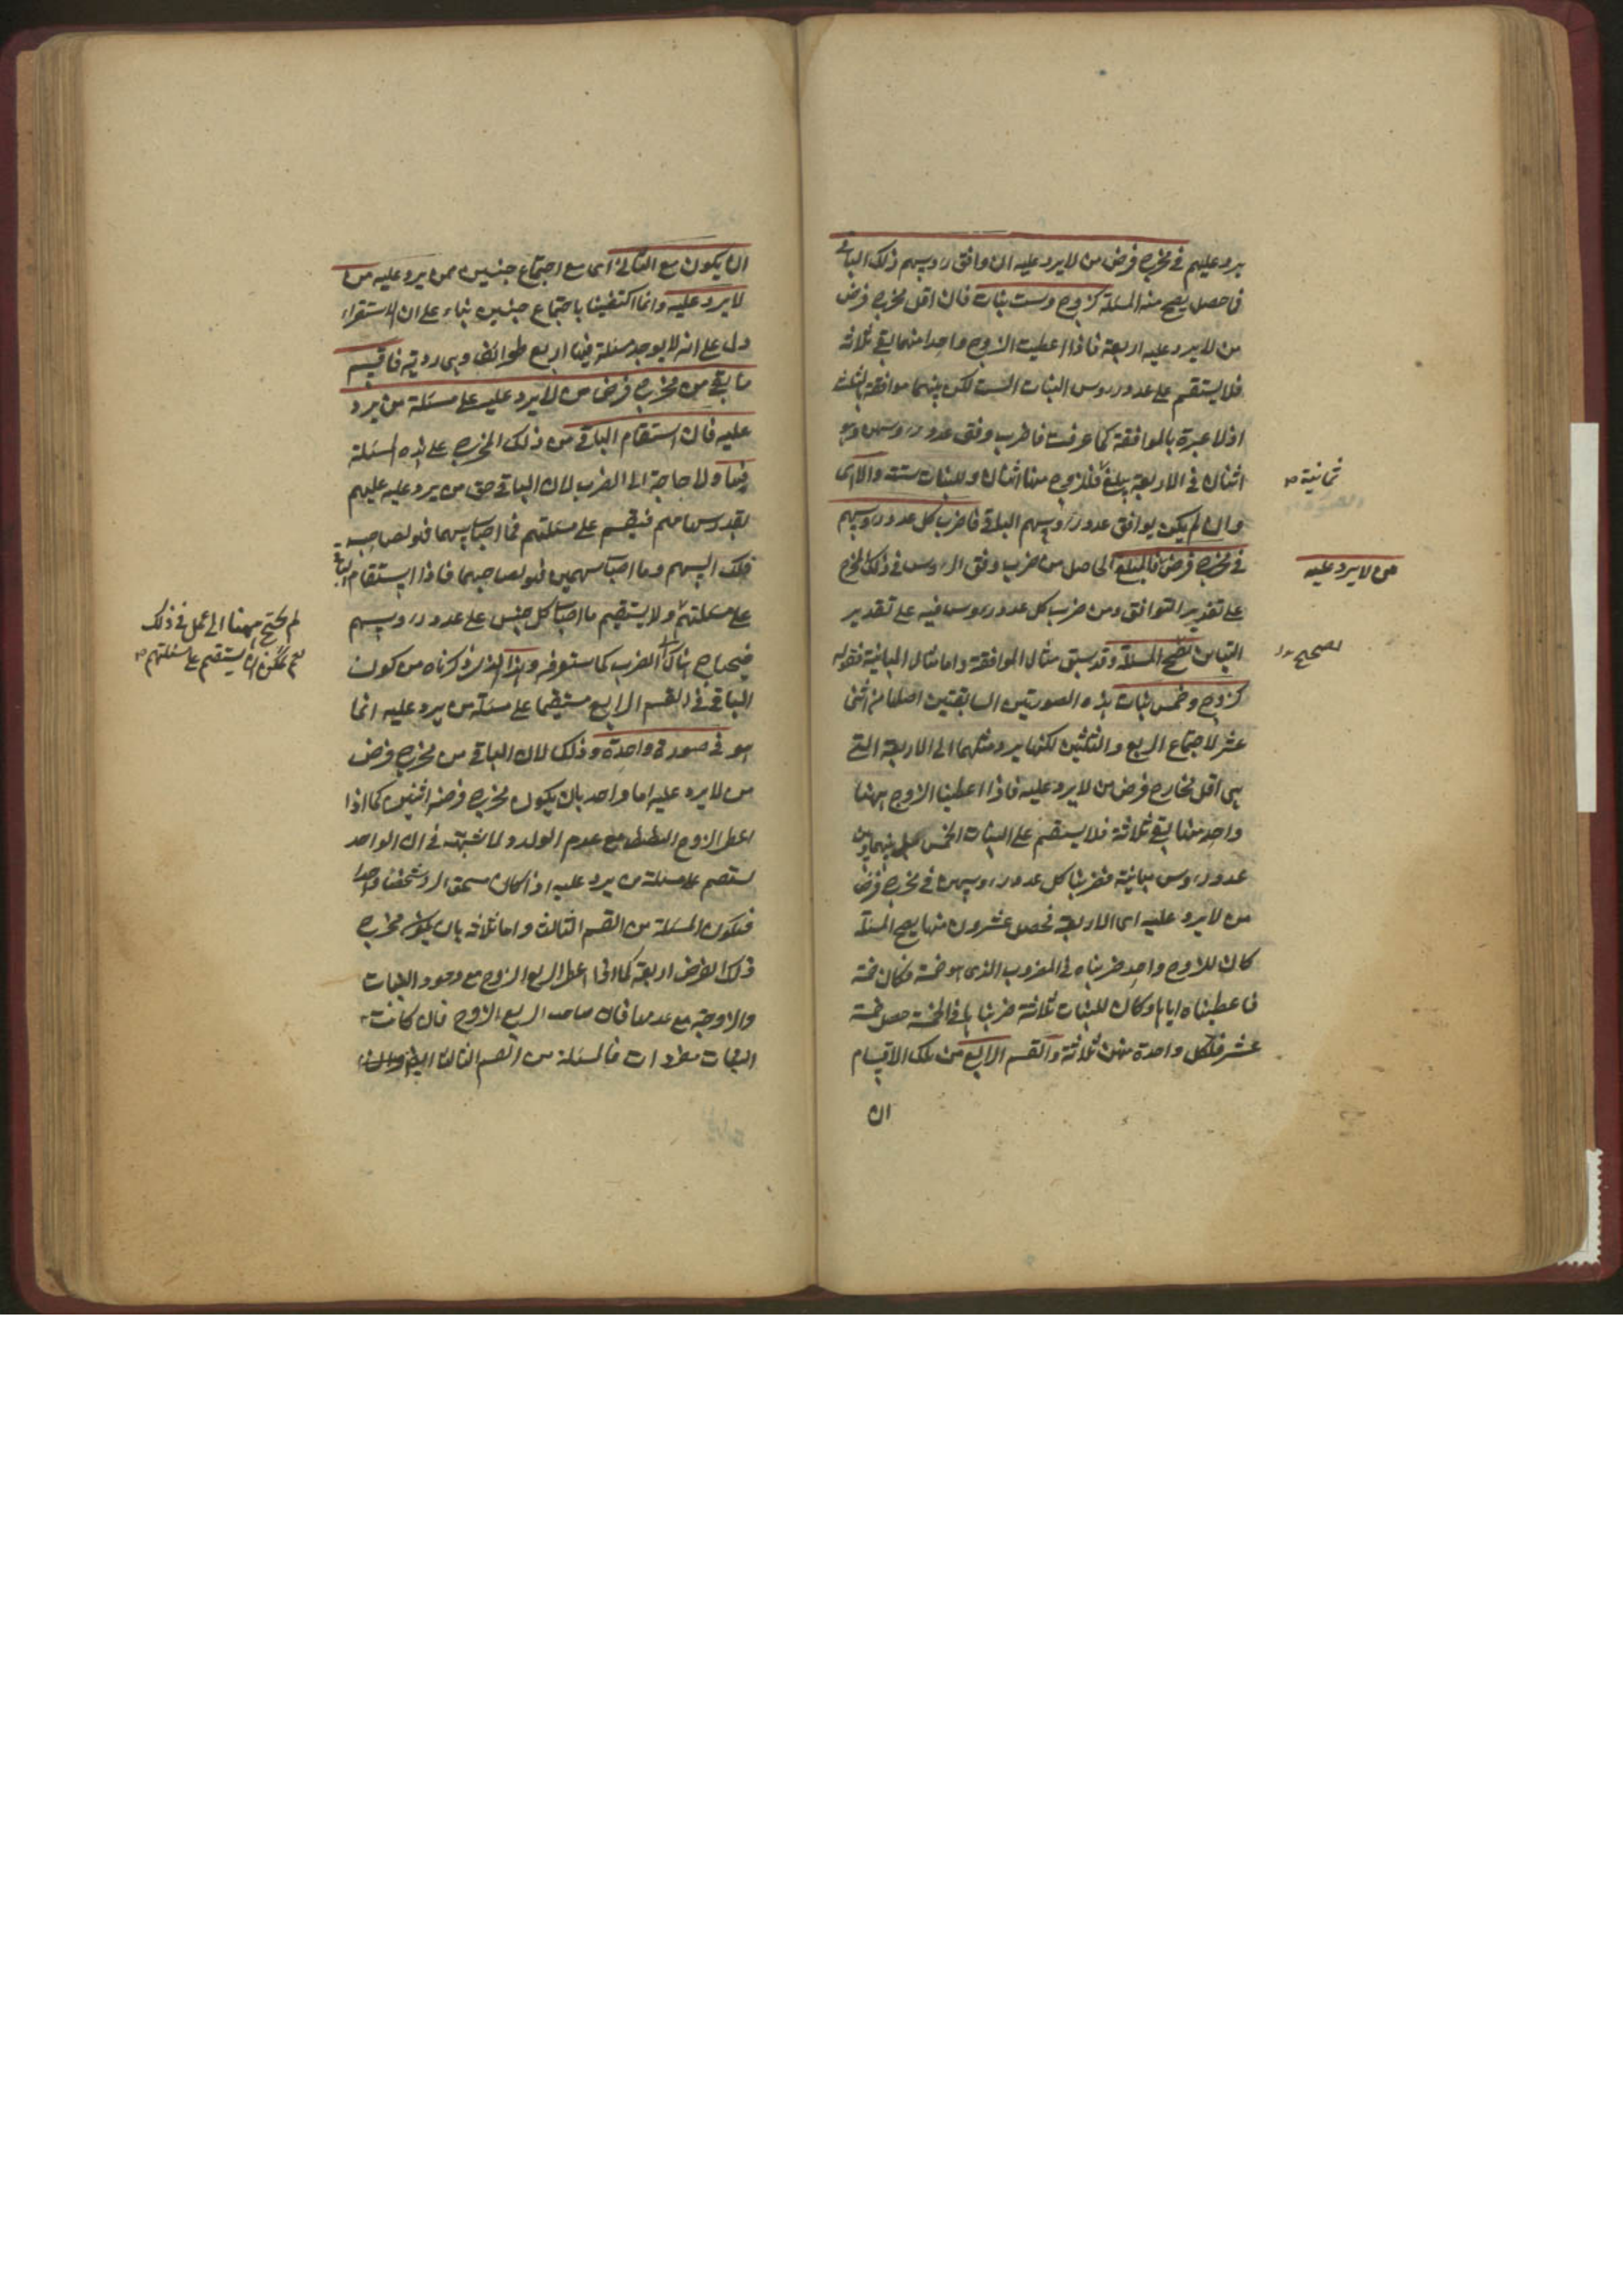 يرد عليهم في مخرج فرض من لا يرد عليه ان وافق روسهم ذلك الباقي
فما حصل يصح منه المسئلة كزوج وست بنات فان اقل مخرج فرض
من لا يرد عليه اربعة فاذا اعطيت الزوج واحدا منها بقي ثلاثة
فلا يستقيم على عدد روس البنات الست لكن بينهما موافقة بالثلث
اذ لا عبرة بالموافقة كما عرفت فاضرب وفق عدد روسهن وهو
اثنان في الاربعة يبلغ فللزوج منها اثنان وللبنات ستة والا اى
ثمانية
وان لم يكن يوافق عدد روسهم الباقي فاضرب كل عدد روسهم
في مخرج فرض فالمبلغ الحاصل من ضرب وفق الروس في ذلك المخرج
من لا يرد عليه
على تقدير التوافق ومن ضرب كل عدد روس فيه على تقدير
التباين المسئلة وقد سبق مثال الموافقة واما مثال المباينة فقوله
كزوج وخمس بنات هذه الصورتين السابقتين اصلها من اثنى
عشر لاجتماع الربع والثلثين لكنها يرد مثلهما الى الاربعة التي
هي اقل مخارج فرض من لا يرد عليه فاذا اعطينا الزوج ههنا
واحد منها بقي ثلاثة فلا يستقيم على البنات الخمس بل بينها وبين
عدد روس مباينة فضربنا كل عدد روسهن في مخرج فرض
من لا يرد عليه اى الاربعة فحصل عشرون منها يصح المسئلة
كان للزوج واحد ضربناه في المضروب الذى هو خمسة فكان خمسة
فاعطيناه اياها وكان للبنات ثلاثة ضربناها في الخمسة حصل خمسة
عشر فلكل واحدة منهن ثلاثة والقسم الرابع من تلك الاقسام
ان
ان يكون مع الثاني اى مع اجتماع جنسين ممن يرد عليه من
لا يرد عليه وانما اكتفينا باجتماع جنسين بناء على ان الاستقراء
دل على انه لا يوجد مسئلة فيها اربع طوائف وهى ردية فاقسم
ما بقي من مخرج فرض من لا يرد عليه على مسئلة من يرد
عليه فان استقام الباقي من ذلك المخرج على هذه المسئلة
فبها ولا حاجة الى الضرب لان الباقي حق من يرد عليه عليهم
بقدر سهامهم فيقسم على مسئلتهم فما اصاب سهما فهو لصاحب
ذلك السهم وما اصاب سهمين فهو لصاحبهما فاذا استقام الباقي
على مسئلتهم ولا يستقيم ما اصاب كل جنس على عدد روسهم
لم يحتج ههنا الى عمل في ذلك
نعم يمكن ان لا يستقيم على مسئلتهم
فيحتاج هناك الى الضرب كما ستعرفه وهذا الذى ذكرناه من كون
الباقي في القسم الرابع مستقيما على مسئلة من يرد عليه انما
هو في صورة واحدة وذلك لان الباقي من مخرج فرض
من لا يرد عليه اما واحد بان يكون مخرج فرضه اثنين كما اذا
اعطى الزوج النصف مع عدم الولد ولا شبهة في ان الواحد
يستقيم على مسئلة من يرد عليه اذا كان مستحق الرد شخصا واحدا
فتكون المسئلة من القسم الثالث واما ثلاثة بان يكون مخرج
ذلك الفرض اربعة كما اذا اعطى الربع الزوج مع وجود البنات
والزوجة مع عدمها فان صاحب الربع الزوج فان كانت
البنات منفردات فالمسئلة من القسم الثالث ايضا وان